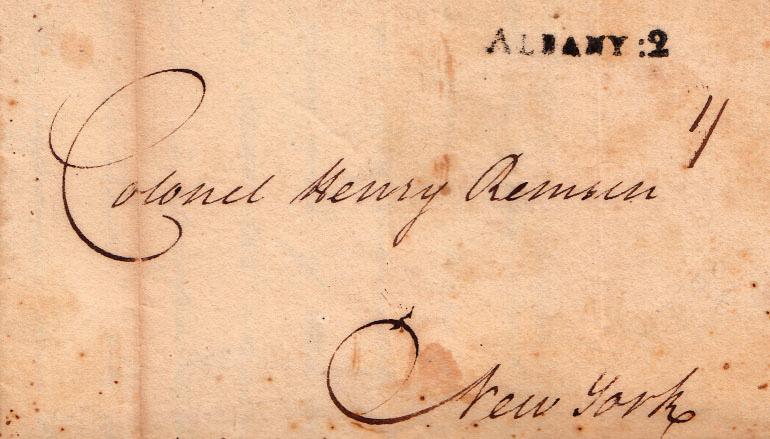 ALBANY:2
11
Colonel Henry Remsen
New York